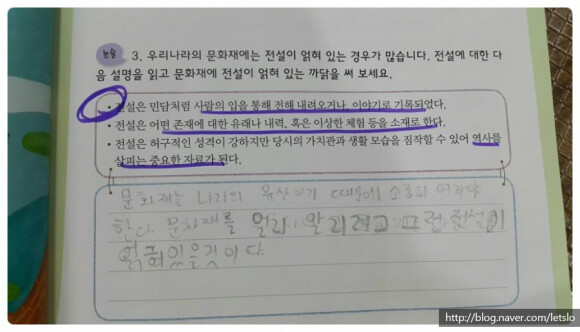 논술 3. 우리나라의 문화재에는 전설이 얽혀 있는 경우가 많습니다. 전설에 대한 다
음 설명을 읽고 문화재에 전설이 얽혀 있는 까닭을 써 보세요.
• 전설은 민담처럼 사람의 입을 통해 전해 내려오거나, 이야기로 기록되었다.
• 전설은 어떤 존재에 대한 유래나 내력, 혹은 이상한 체험 등을 소재로 한다.
• 전설은 허구적인 성격이 강하지만 당시의 가치관과 생활 모습을 짐작할 수 있어 역사를
살피는 중요한 자료가 된다.
문화재는 나라의 유산이기 때문에 소중히 여겨야
한다. 문화재를 널리 알리려고 그런 전설이
얽혀있을것이다.
http://blog.naver.com/letslo